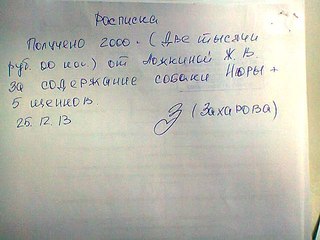 Расписка
Получено 2000.- (Две тысячи
руб. 00 коп.) от Ложкиной Ж. В.
за содержание собаки Нюры +
5 щенков.
25.12.13 (Захарова)